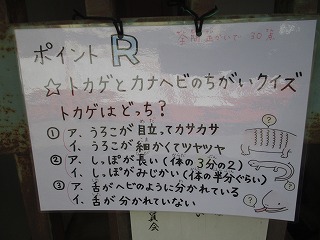 ポイント R
全問 正かいで 30点
☆トカゲとカナヘビのちがいクイズ
トカゲはどっち?
① ア、うろこが目立ってカサカサ
イ、うろこが細かくてツヤツヤ
② ア、しっぽが長い(体の3分の2)
イ、しっぽがみじかい(体の半分ぐらい)
③ ア、舌がヘビのように分かれている
イ、舌が分かれていない
?
?
?